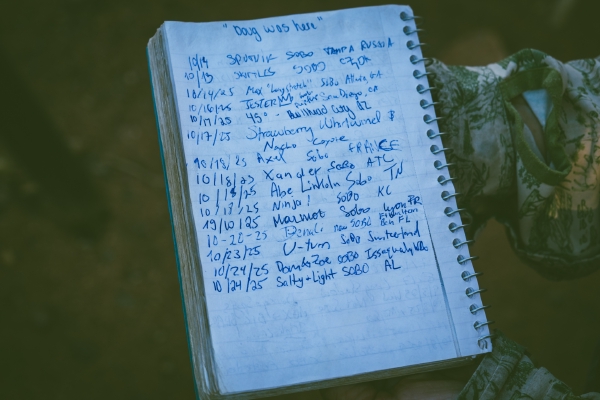 "Doug was here"
10/14 SPUTNIK SOBO TAMPA RUSSIA
10/15 SKITTLES SOBO
10/14/25 Max "Long stretch" SOBO Atlanta, GA
10/16/25 JESTER San Diego, CA
10/17/25 45° - Bullhead City AZ
10/17/25 Strawberry Whirlwind &
Nacho
10/18/25 Axel Sobo FRANCE
10/18/25 Xander SOBO ATL
10/18/25 Abe Linkoln Sobo TN
10/17/25 Ninja! SOBO KC
10/25 Marmot Sobo Lyon FR
10-22-25 Denali SOBO FL
10/23/25 U-turn SoBo Switzerland
10/24/25 SOBO Issaquah, WA
10/24/25 Salty + Light SOBO AL